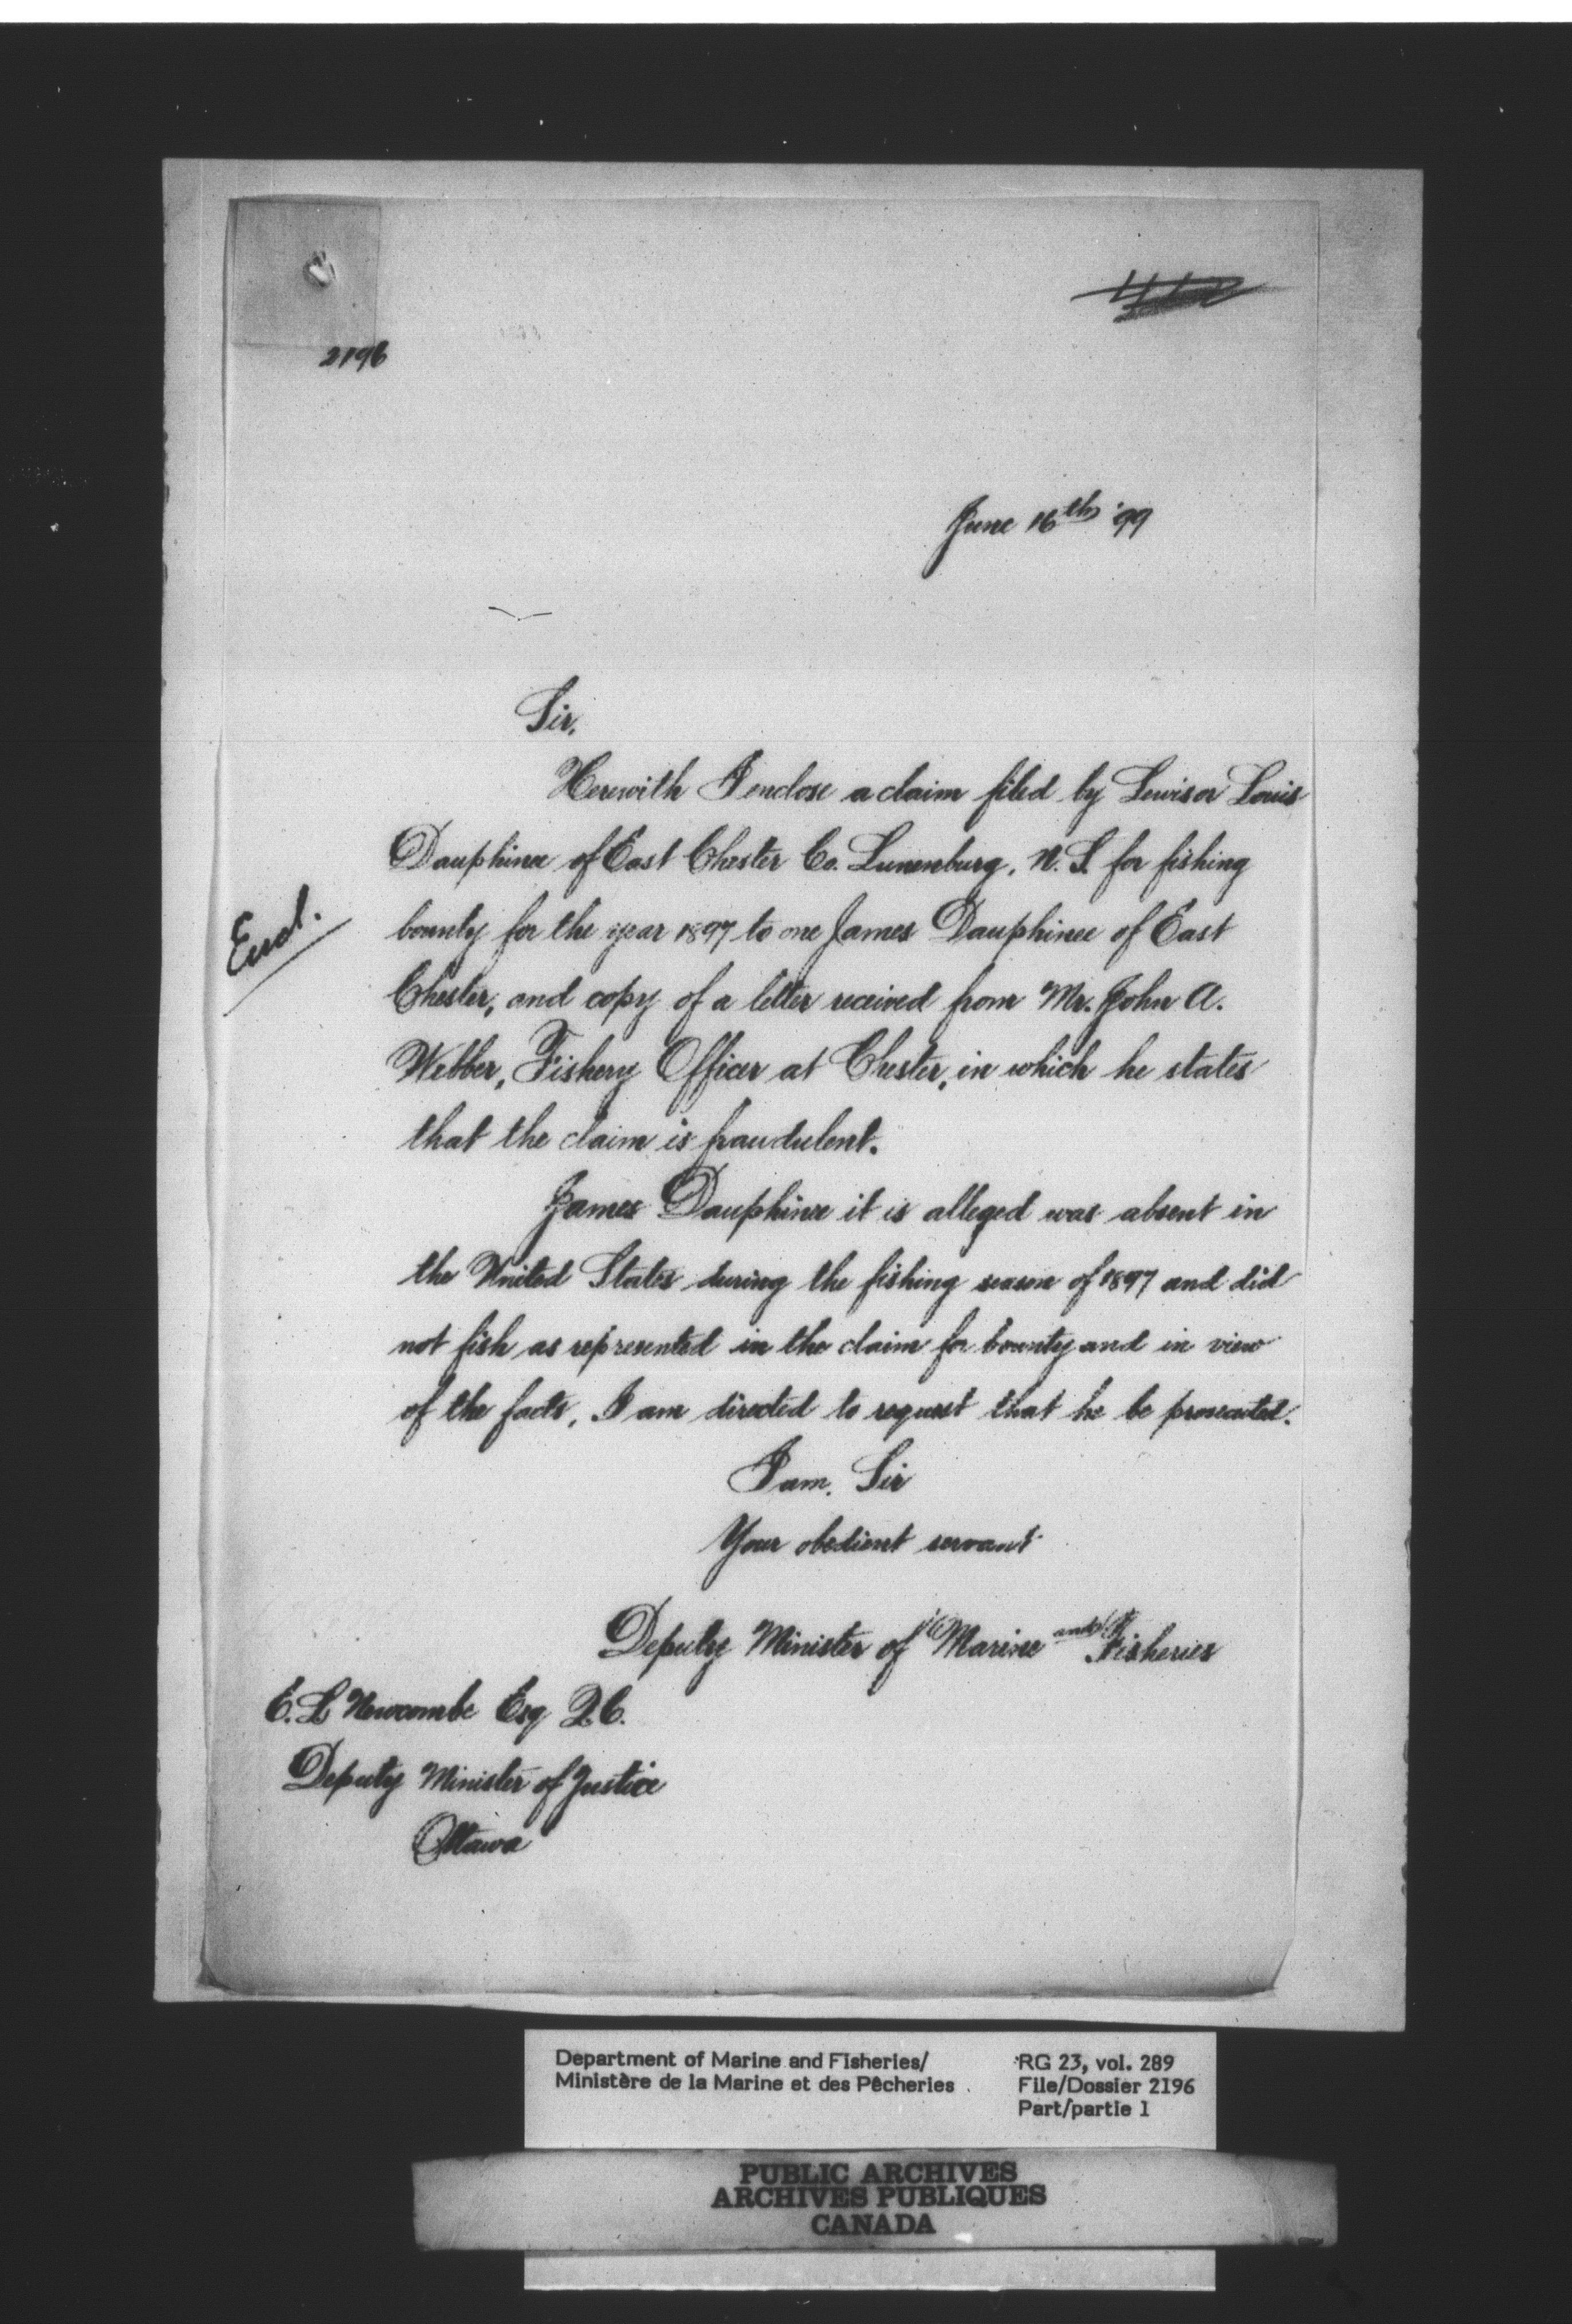 2196
June 16th '99
Sir,
Herewith I enclose a claim filed by Lewis or Louis
Dauphinee of East Chester Co. Lunenburg, N.S. for fishing
bounty for the year 1897 to one James Dauphinee of East
Encl.
Chester, and copy of a letter received from Mr. John A.
Webber, Fishery Officer at Chester, in which he states
that the claim is fraudulent.
James Dauphinee it is alleged was absent in
the United States during the fishing season of 1897 and did
not fish as represented in the claim for bounty and in view
of the facts, I am directed to request that he be prosecuted.
I am, Sir
Your obedient servant
Deputy Minister of Marine and Fisheries
E. L Newcombe Esq Q.C.
Deputy Minister of Justice
Ottawa
Department of Marine and Fisheries/
Ministère de la Marine et des Pêcheries
RG 23, vol. 289
File/Dossier 2196
Part/partie 1
PUBLIC ARCHIVES
ARCHIVES PUBLIQUES
CANADA